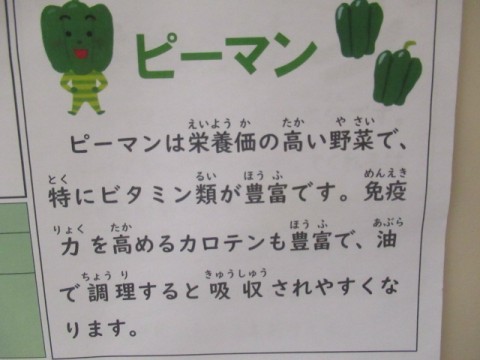 ピーマン
えいようか たか やさい
ピーマンは栄養価の高い野菜で、
とく るい ほうふ めんえき
特にビタミン類が豊富です。免疫
りょく たか ほうふ あぶら
力を高めるカロテンも豊富で、油
ちょうり きゅうしゅう
で調理すると吸収されやすくな
ります。